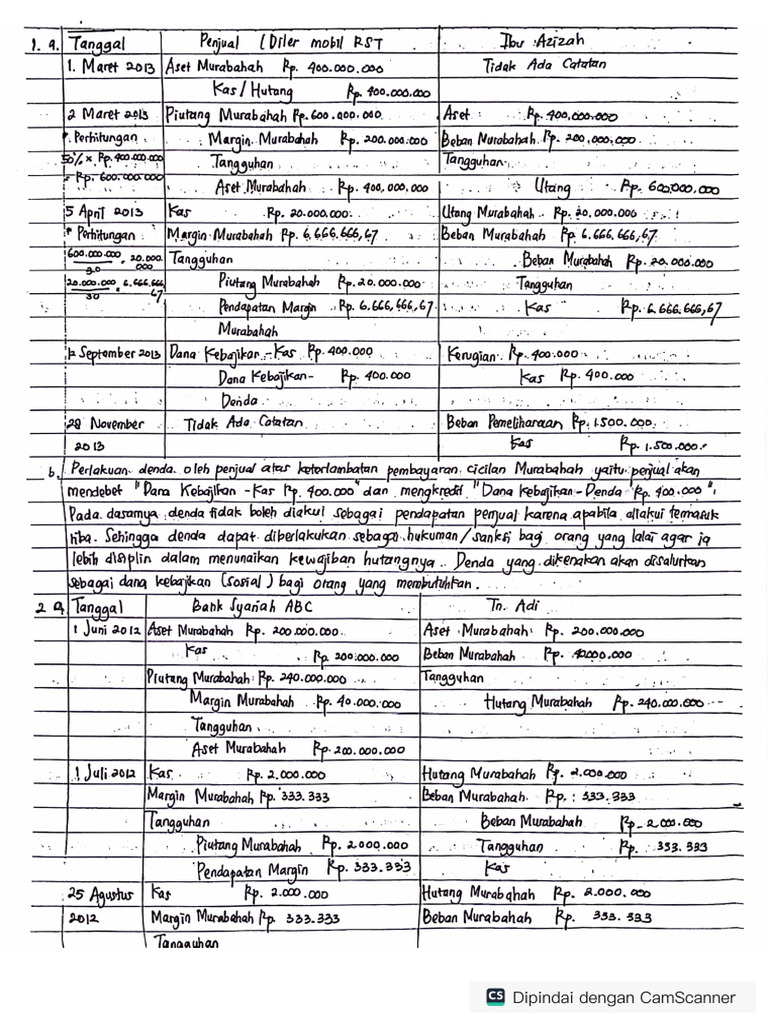 1. a. Tanggal Penjual (Diler mobil RST Ibu Azizah
1. Maret 2013 Aset Murabahah Rp. 400.000.000 Tidak Ada Catatan
Kas / Hutang Rp. 400.000.000
2 Maret 2013 Piutang Murabahah Rp. 600.000.000 Aset Rp. 400.000.000
* Perhitungan Margin Murabahah Rp. 200.000.000 Beban Murabahah Rp. 200.000.000
50% x Rp. 400.000.000 Tangguhan Tangguhan
= Rp. 600.000.000 Aset Murabahah Rp. 400.000.000 Utang Rp. 600.000.000
5 April 2013 Kas Rp. 20.000.000 Utang Murabahah Rp. 20.000.000
* Perhitungan Margin Murabahah Rp. 6.666.666,67 Beban Murabahah Rp. 6.666.666,67
600.000.000 / 30 = 20.000.000 Tangguhan Beban Murabahah Rp. 20.000.000
Piutang Murabahah Rp. 20.000.000 Tangguhan
Pendapatan Margin Rp. 6.666.666,67 Kas Rp. 6.666.666,67
Murabahah
12 September 2013 Dana Kebajikan - Kas Rp. 400.000 Kerugian Rp. 400.000
Dana Kebajikan- Rp. 400.000 Kas Rp. 400.000
Denda
28 November Tidak Ada Catatan Beban Pemeliharaan Rp. 1.500.000
2013 Kas Rp. 1.500.000
b. Perlakuan denda oleh penjual atas keterlambatan pembayaran cicilan Murabahah yaitu penjual akan
mendebet "Dana Kebajikan - Kas Rp. 400.000" dan mengkredit "Dana Kebajikan - Denda Rp. 400.000".
Pada dasarnya denda tidak boleh diakui sebagai pendapatan penjual karena apabila diakui termasuk
riba. Sehingga denda dapat diberlakukan sebagai hukuman / sanksi bagi orang yang lalai agar ia
lebih disiplin dalam menunaikan kewajiban hutangnya. Denda yang dikenakan akan disalurkan
sebagai dana kebajikan (sosial) bagi orang yang membutuhkan.
2 a. Tanggal Bank Syariah ABC Tn. Adi
1 Juni 2012 Aset Murabahah Rp. 200.000.000 Aset Murabahah Rp. 200.000.000
Kas Rp 200.000.000 Beban Murabahah Rp. 40.000.000
Piutang Murabahah Rp. 240.000.000 Tangguhan
Margin Murabahah Rp. 40.000.000 Hutang Murabahah Rp. 240.000.000
Tangguhan
Aset Murabahah Rp. 200.000.000
1 Juli 2012 Kas Rp. 2.000.000 Hutang Murabahah Rp. 2.000.000
Margin Murabahah Rp. 333.333 Beban Murabahah Rp. 333.333
Tangguhan Beban Murabahah Rp 2.000.000
Piutang Murabahah Rp. 2.000.000 Tangguhan Rp. 333.333
Pendapatan Margin Rp. 333.333 Kas
25 Agustus Kas Rp. 2.000.000 Hutang Murabahah Rp. 2.000.000
2012 Margin Murabahah Rp. 333.333 Beban Murabahah Rp. 333.333
Tangguhan
CS Dipindai dengan CamScanner